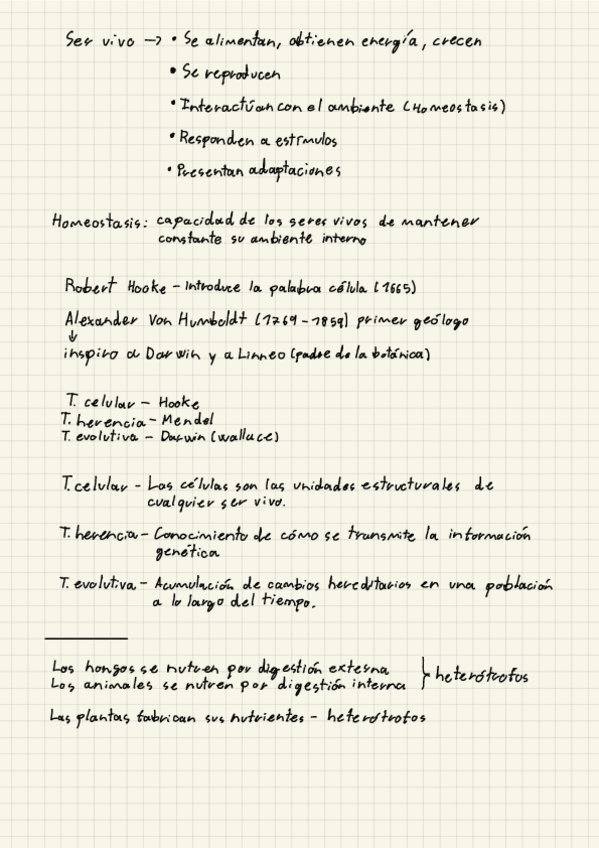 Ser vivo → • Se alimentan, obtienen energía, crecen
• Se reproducen
• Interactúan con el ambiente (Homeostasis)
• Responden a estímulos
• Presentan adaptaciones
Homeostasis: capacidad de los seres vivos de mantener
constante su ambiente interno
Robert Hooke - Introduce la palabra célula (1665)
Alexander Von Humboldt (1769-1859) primer geólogo
↓
inspiro a Darwin y a Linneo (padre de la botánica)
T. celular - Hooke
T. herencia - Mendel
T. evolutiva - Darwin (wallace)
T. celular - Las células son las unidades estructurales de
cualquier ser vivo.
T. herencia - Conocimiento de cómo se transmite la información
genética
T. evolutiva - Acumulación de cambios hereditarios en una población
a lo largo del tiempo.
Los hongos se nutren por digestión externa
Los animales se nutren por digestión interna } heterótrofos
Las plantas fabrican sus nutrientes - heterótrofos